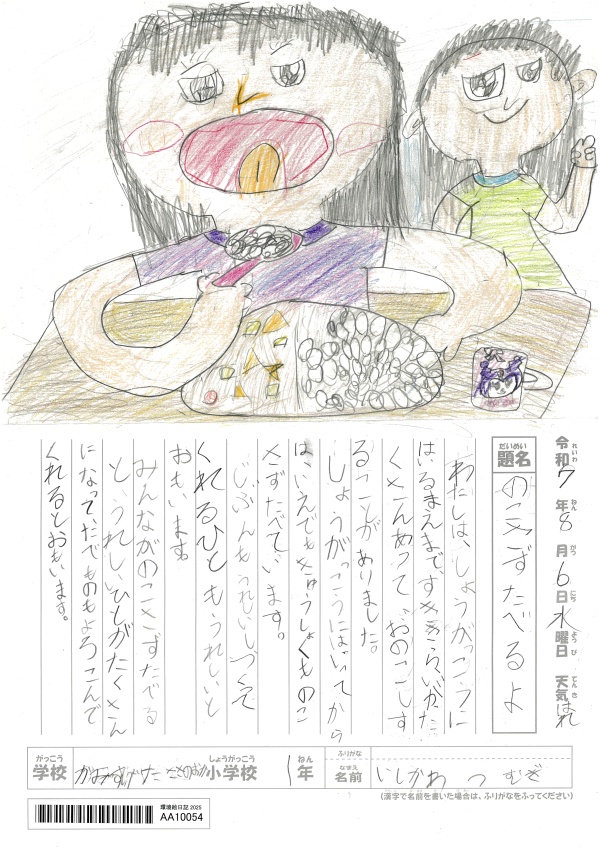 令和7年8月6日水曜日 天気はれ
れいわ ねん がつ にち ようび てんき
だいめい
題名 のこさずたべるよ
わたしは、しょうがっこうに
はいるまえまですききらいがた
くさんあって おのこしす
ることがありました。
しょうがっこうにはいってから
は、いえでもきゅうしょくものこ
さずたべています。
じぶんもうれしいしつくて
くれるひともうれしいと
おもいます。
みんながのこさずたべる
と、うれしいひとがたくさん
になって、たべものもよろこんで
くれるとおもいます。
がっこう しょうがっこう ねん ふりがな
学校 小学校 1年 なまえ 名前 いしかわ つむぎ
(漢字で名前を書いた場合は、ふりがなをふってください)
環境絵日記 2025
AA10054